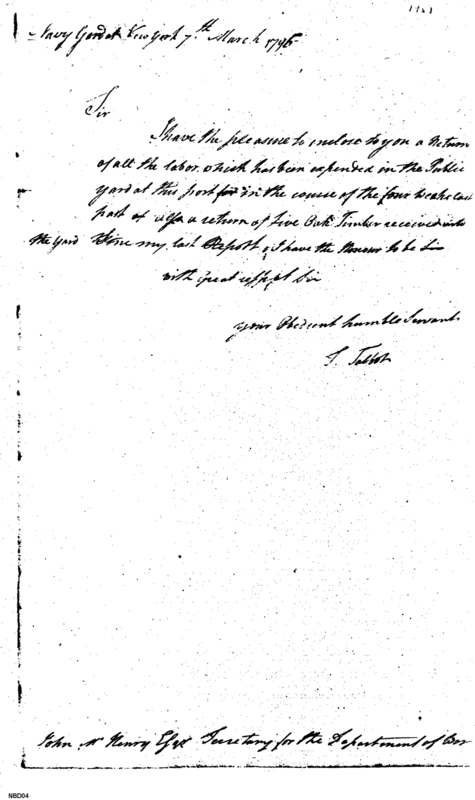 Navy Yard at New York 7th March 1796
Sir
I have the pleasure to inclose to you a Return
of all the labor which has been expended in the Public
yard at this port for in the course of the four weaks last
past of also a return of Live Oak Timber received into
the Yard Since my last Report & I have the Honour to be Sir
with great respect Sir
your Obedient humble Servant
S. Talbot
John Mc Henry Esqr Secretary for the Department of War
NBD04